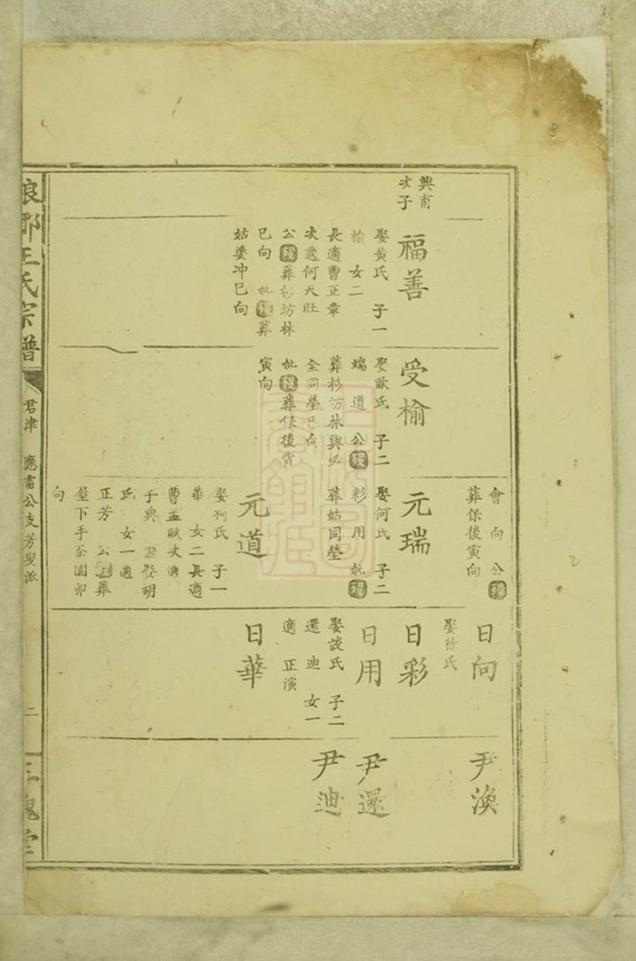 興甫
次子
福善
娶黃氏 子一
榆 女二
長適曹正章
次適何天旺
公歿葬杉坊林
巳向 妣歿葬
姑婆冲巳向
受榆
娶歐氏 子二
瑞 道 公歿
葬杉坊林興必
仝同塋巳向
妣歿葬保後背
寅向
會 向 公歿
葬保後寅向
元瑞
娶何氏 子二
彩 用 妣歿
葬姑同塋
元道
娶何氏 子一
華 女二長適
曹孟賦次適
于典 娶胡
氏 女一適
正芳 公葬
屋下手茶園卯
向
日向
娶徐氏
日彩
日用
娶談氏 子二
還 迪 女一
適 正演
日華
尹渙
尹還
尹迪
琅琊王氏宗譜
君津 應雷公支芳燮派
二
三槐堂